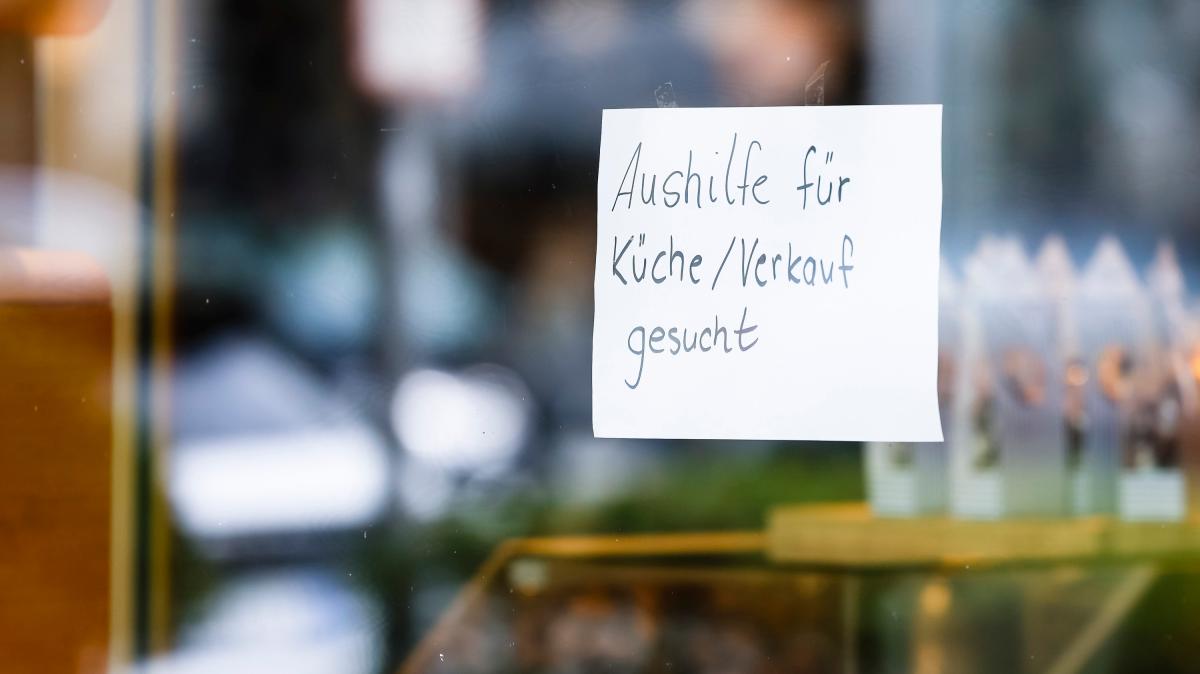 Aushilfe für
Küche/Verkauf
gesucht